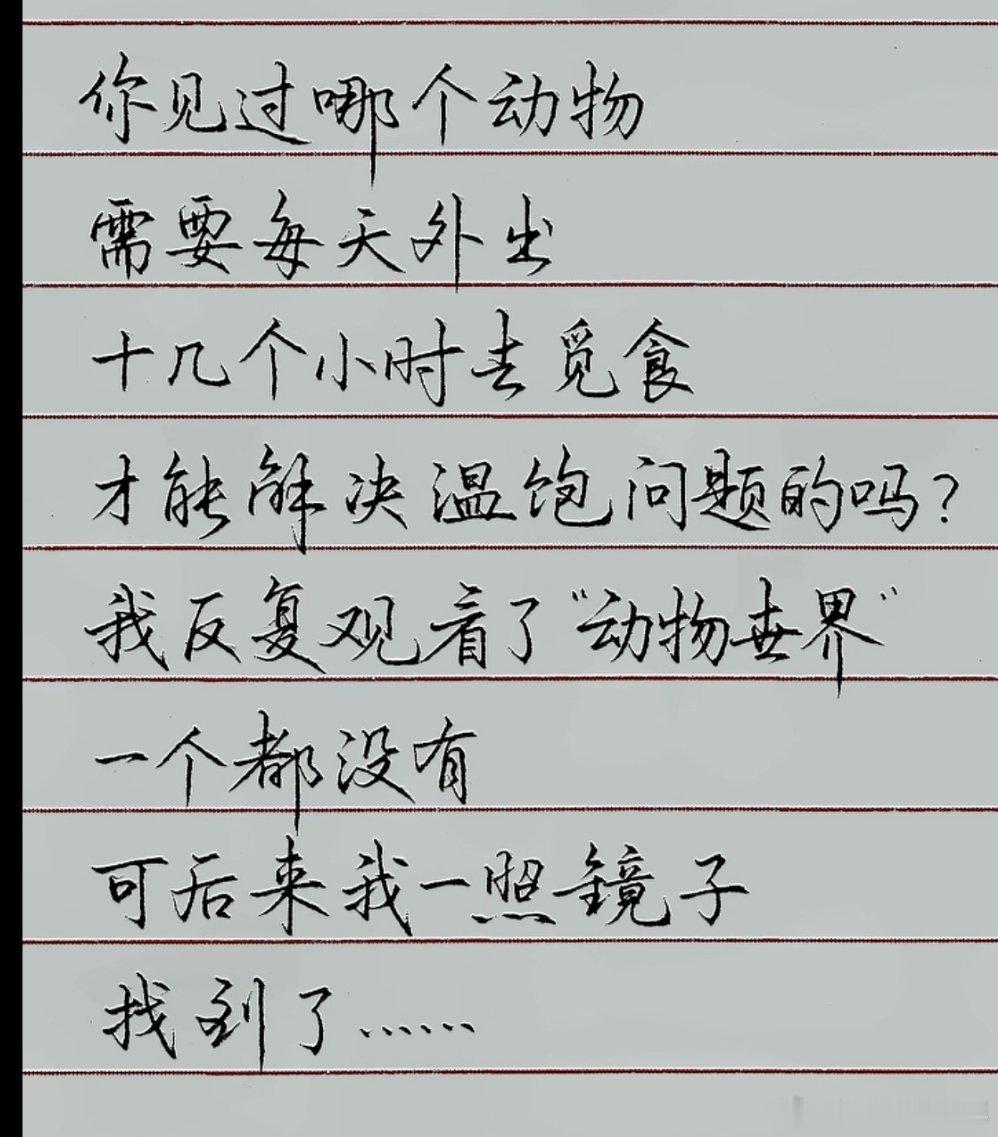 你见过哪个动物
需要每天外出
十几个小时去觅食
才能解决温饱问题的吗？
我反复观看了“动物世界”
一个都没有
可后来我一照镜子
找到了……